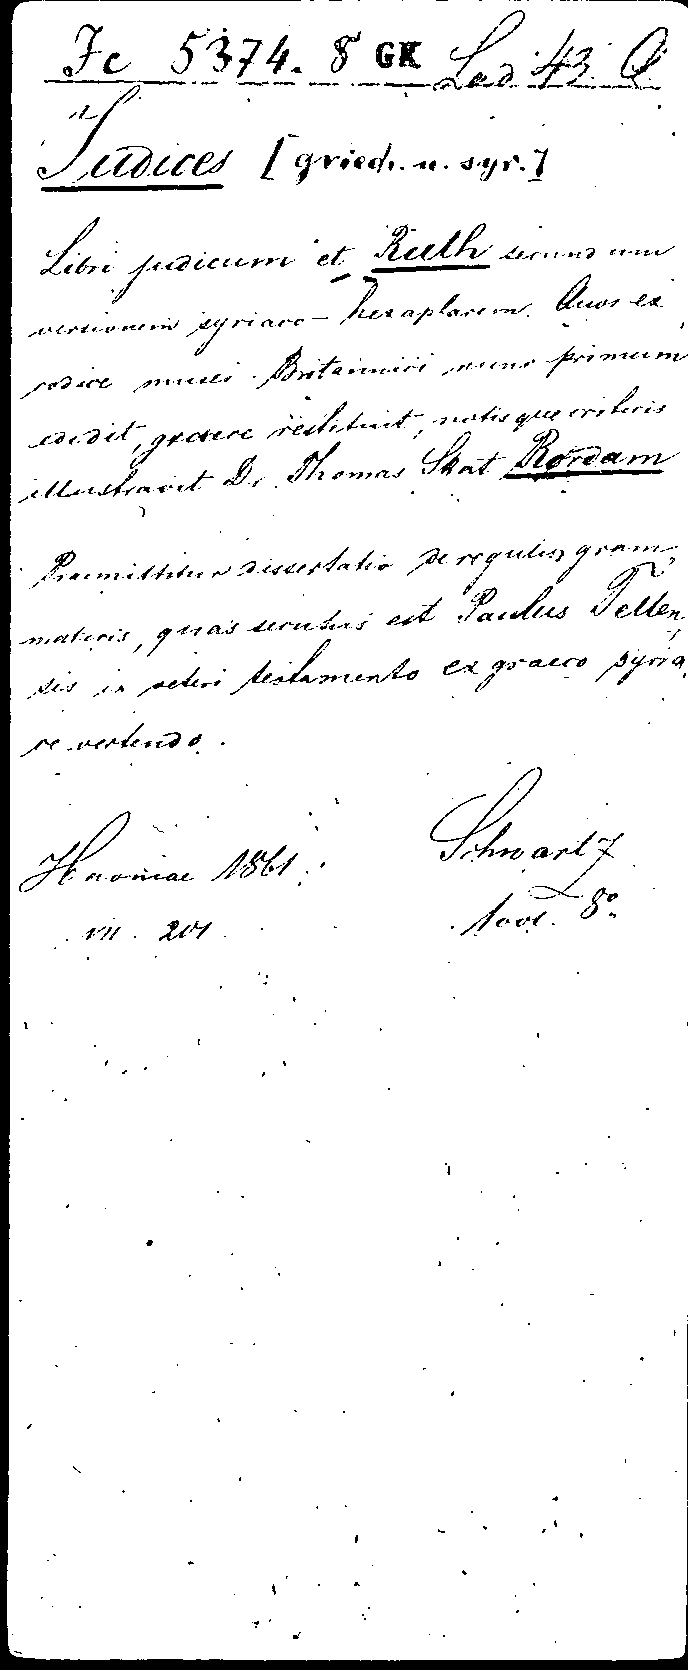 Fc 5374. 8 GK Lad 43 Q
Judices [griech. u. syr.]
Libri judicum et Ruth secundum
versionem syriaco-hexaplarem. Quos ex
codice musei Britannici nunc primum
edidit, graece restituit, notisque criticis
illustravit Dr Thomas Skat Rørdam
Praemittitur dissertatio de regulis gram,
maticis, quas secutus est Paulus Tellen,
sis in veteri testamento ex graeco syria,
ce vertendo.
Havniae 1861. Schwartz
VII. 201 8°